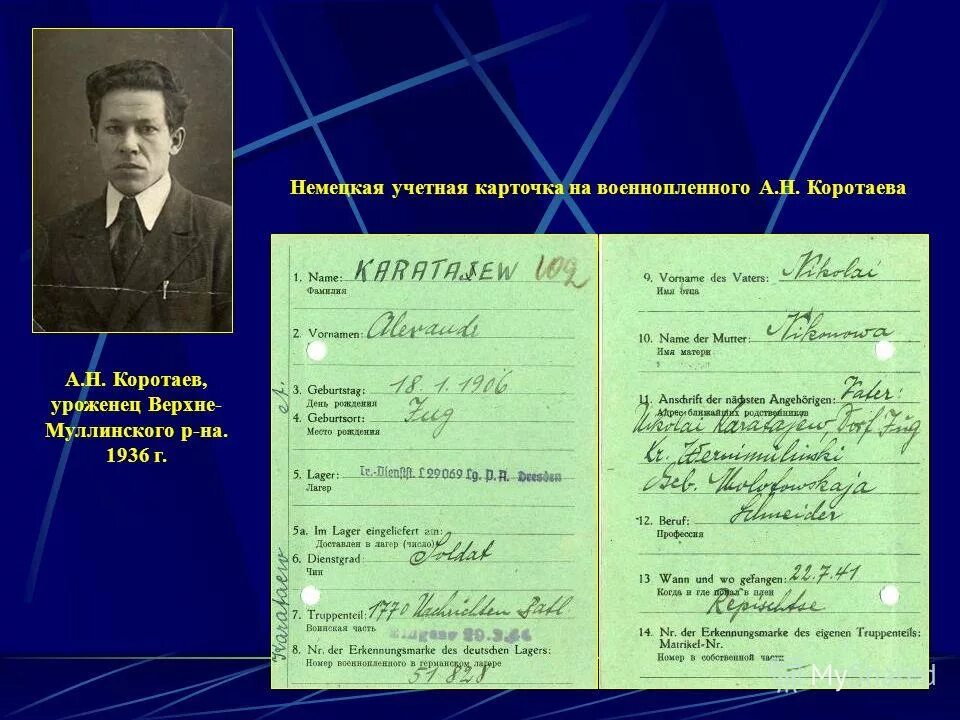 Немецкая учетная карточка на военнопленного А.Н. Коротаева
А.Н. Коротаев,
уроженец Верхне-
Муллинского р-на.
1936 г.
1. Name: KARATAJEW 102
Фамилия
2. Vornamen: Alexand
3. Geburtstag: 18.1.1906
День рождения
4. Geburtsort: Jug
Место рождения
5. Lager: Kr.-Dienstst. L 29069 Lg. P.A. Dresden
Лагерь
5a. Im Lager eingeliefert am:
Доставлен в лагер (число)
6. Dienstgrad: Soldat
Чин
7. Truppenteil: 1770 Nachrichten Batl
Воинская часть
Eingang 29.3.44
8. Nr. der Erkennungsmarke des deutschen Lagers:
Номер военнопленного в германском лагере
51 828
Karataew A.
9. Vorname des Vaters: Nikolai
Имя отца
10. Name der Mutter: Nikonowa
Имя матери
11. Anschrift der nächsten Angehörigen: Vater:
Адрес ближайших родственников
Nikolai Karatajew, Dorf Jug
Kr.
Geb. Molotowskaja
12. Beruf: Schneider
Профессия
13 Wann und wo gefangen: 22.7.41
Когда и где попал в плен
Repischtse
14. Nr. der Erkennungsmarke des eigenen Truppenteils:
Matrikel-Nr.
Номер в собственной части
MyShared